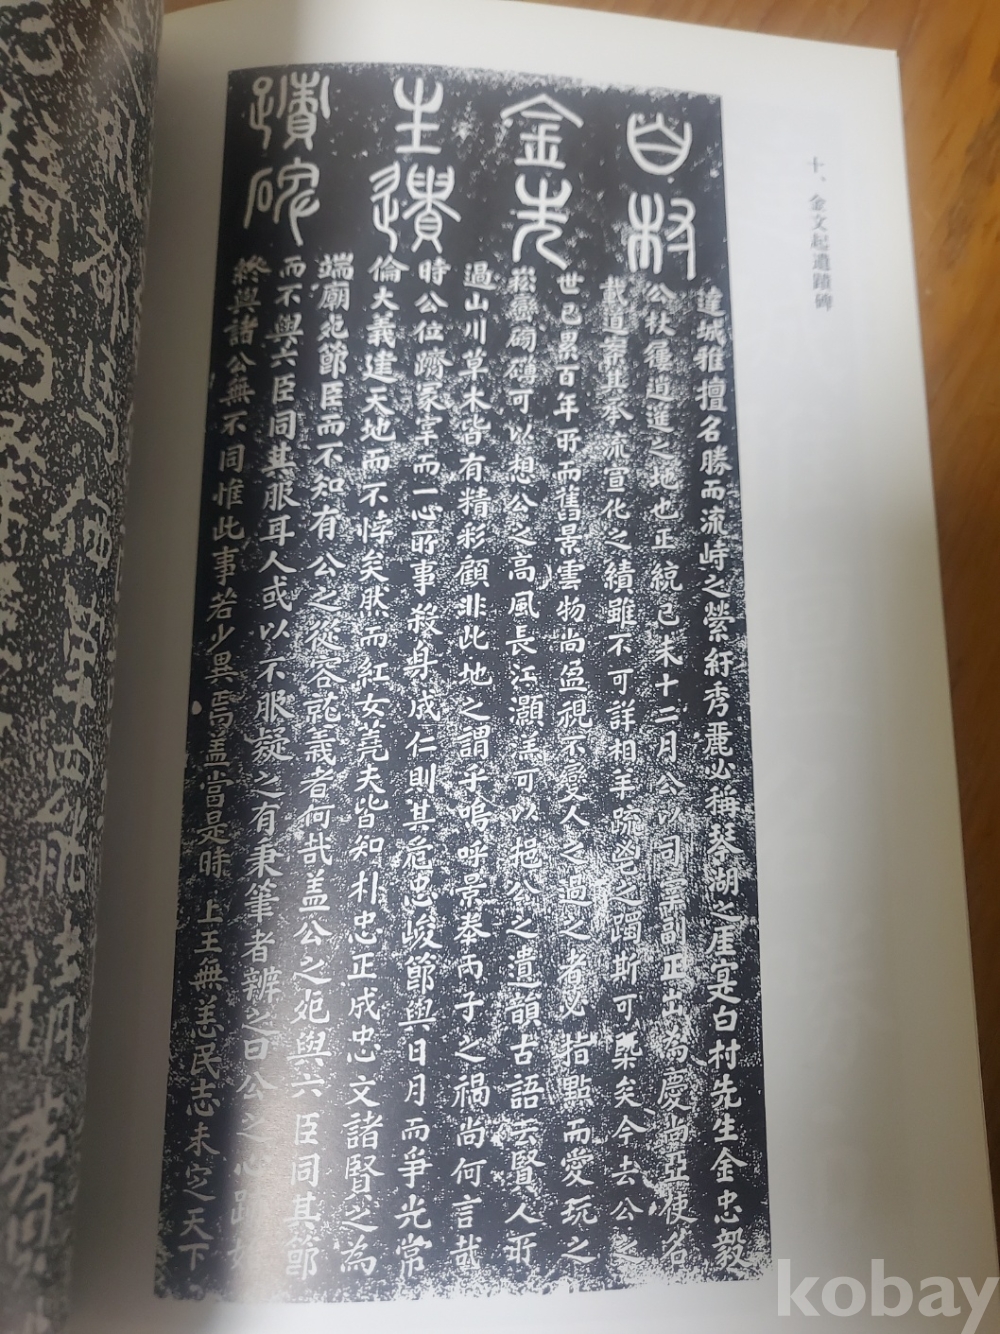 十、金文起遺蹟碑
白村
金先
生遺
蹟碑
達城雅擅名勝而流峙之縈紆秀麗必稱琴湖之厓寔白村先生金忠毅
公杖屨道進之地也正統己未十二月公以司宰副正出為慶尚亞使名
載道案其承流宣化之績雖不可詳相羊疏之躅斯可槩矣今去公之
世已累百年所而舊景雲物尚盈視不變人之過之者必指點而愛玩之
崧磅礴可以想公之高風長江灝溔可以挹公之遺韻古語云賢人所
過山川草木皆有精彩顧非此地之謂乎嗚呼景泰丙子之禍尚何言哉
時公位躋冢宰而一心所事殺身成仁則其危忠峻節與日月而爭光常
倫大義建天地而不悖矣然而紅女蕘夫皆知朴忠正成忠文諸賢之為
端廟死節臣而不知有公之從容就義者何哉盖公之死與六臣同其節
而不與六臣同其服耳人或以不服疑之有秉筆者辨之曰公之心跡如
終與諸公無不同惟此事若少異焉盖當是時 上王無恙民志未定天下
kobay